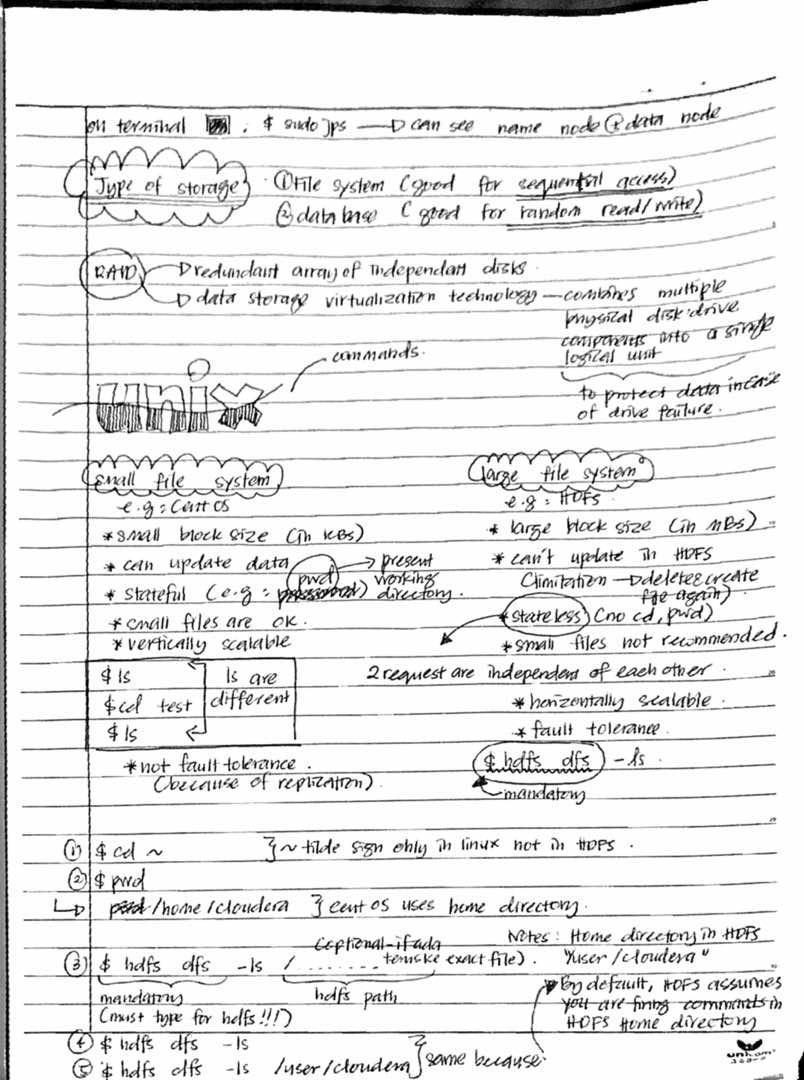 on terminal : $ sudo jps → can see name node + data node
Type of storage
① File system (good for sequential access)
② database (good for random read/write)
RAID
▷ redundant array of independant disks.
▷ data storage virtualization technology — combines multiple
physical disk drive
components into a single
logical unit
to protect data in case
of drive failure.
unix
commands.
small file system
e.g : Cent OS
* small block size (in KBs)
* can update data
* stateful (e.g : pwd) → present working directory.
* small files are OK.
* vertically scalable
$ ls
$ cd test
$ ls
ls are
different
* not fault tolerance.
(because of replication).
large file system
e.g : HDFS
* large block size (in MBs)
* can't update in HDFS
(limitation → delete & create
file again)
* stateless (no cd, pwd)
* small files not recommended.
2 request are independent of each other.
* horizontally scalable.
* fault tolerance.
$ hdfs dfs -ls
mandatory
① $ cd ~ } ~ tilde sign only in linux not in HDFS.
② $ pwd
/home/cloudera } cent OS uses home directory.
Notes : Home directory in HDFS
"user/cloudera"
(optional-if ada
exact file).
③ $ hdfs dfs -ls /........
mandatory
(must type for hdfs!!!)
hdfs path
By default, HDFS assumes
you are firing commands in
HDFS Home directory
④ $ hdfs dfs -ls
⑤ $ hdfs dfs -ls /user/cloudera } same because